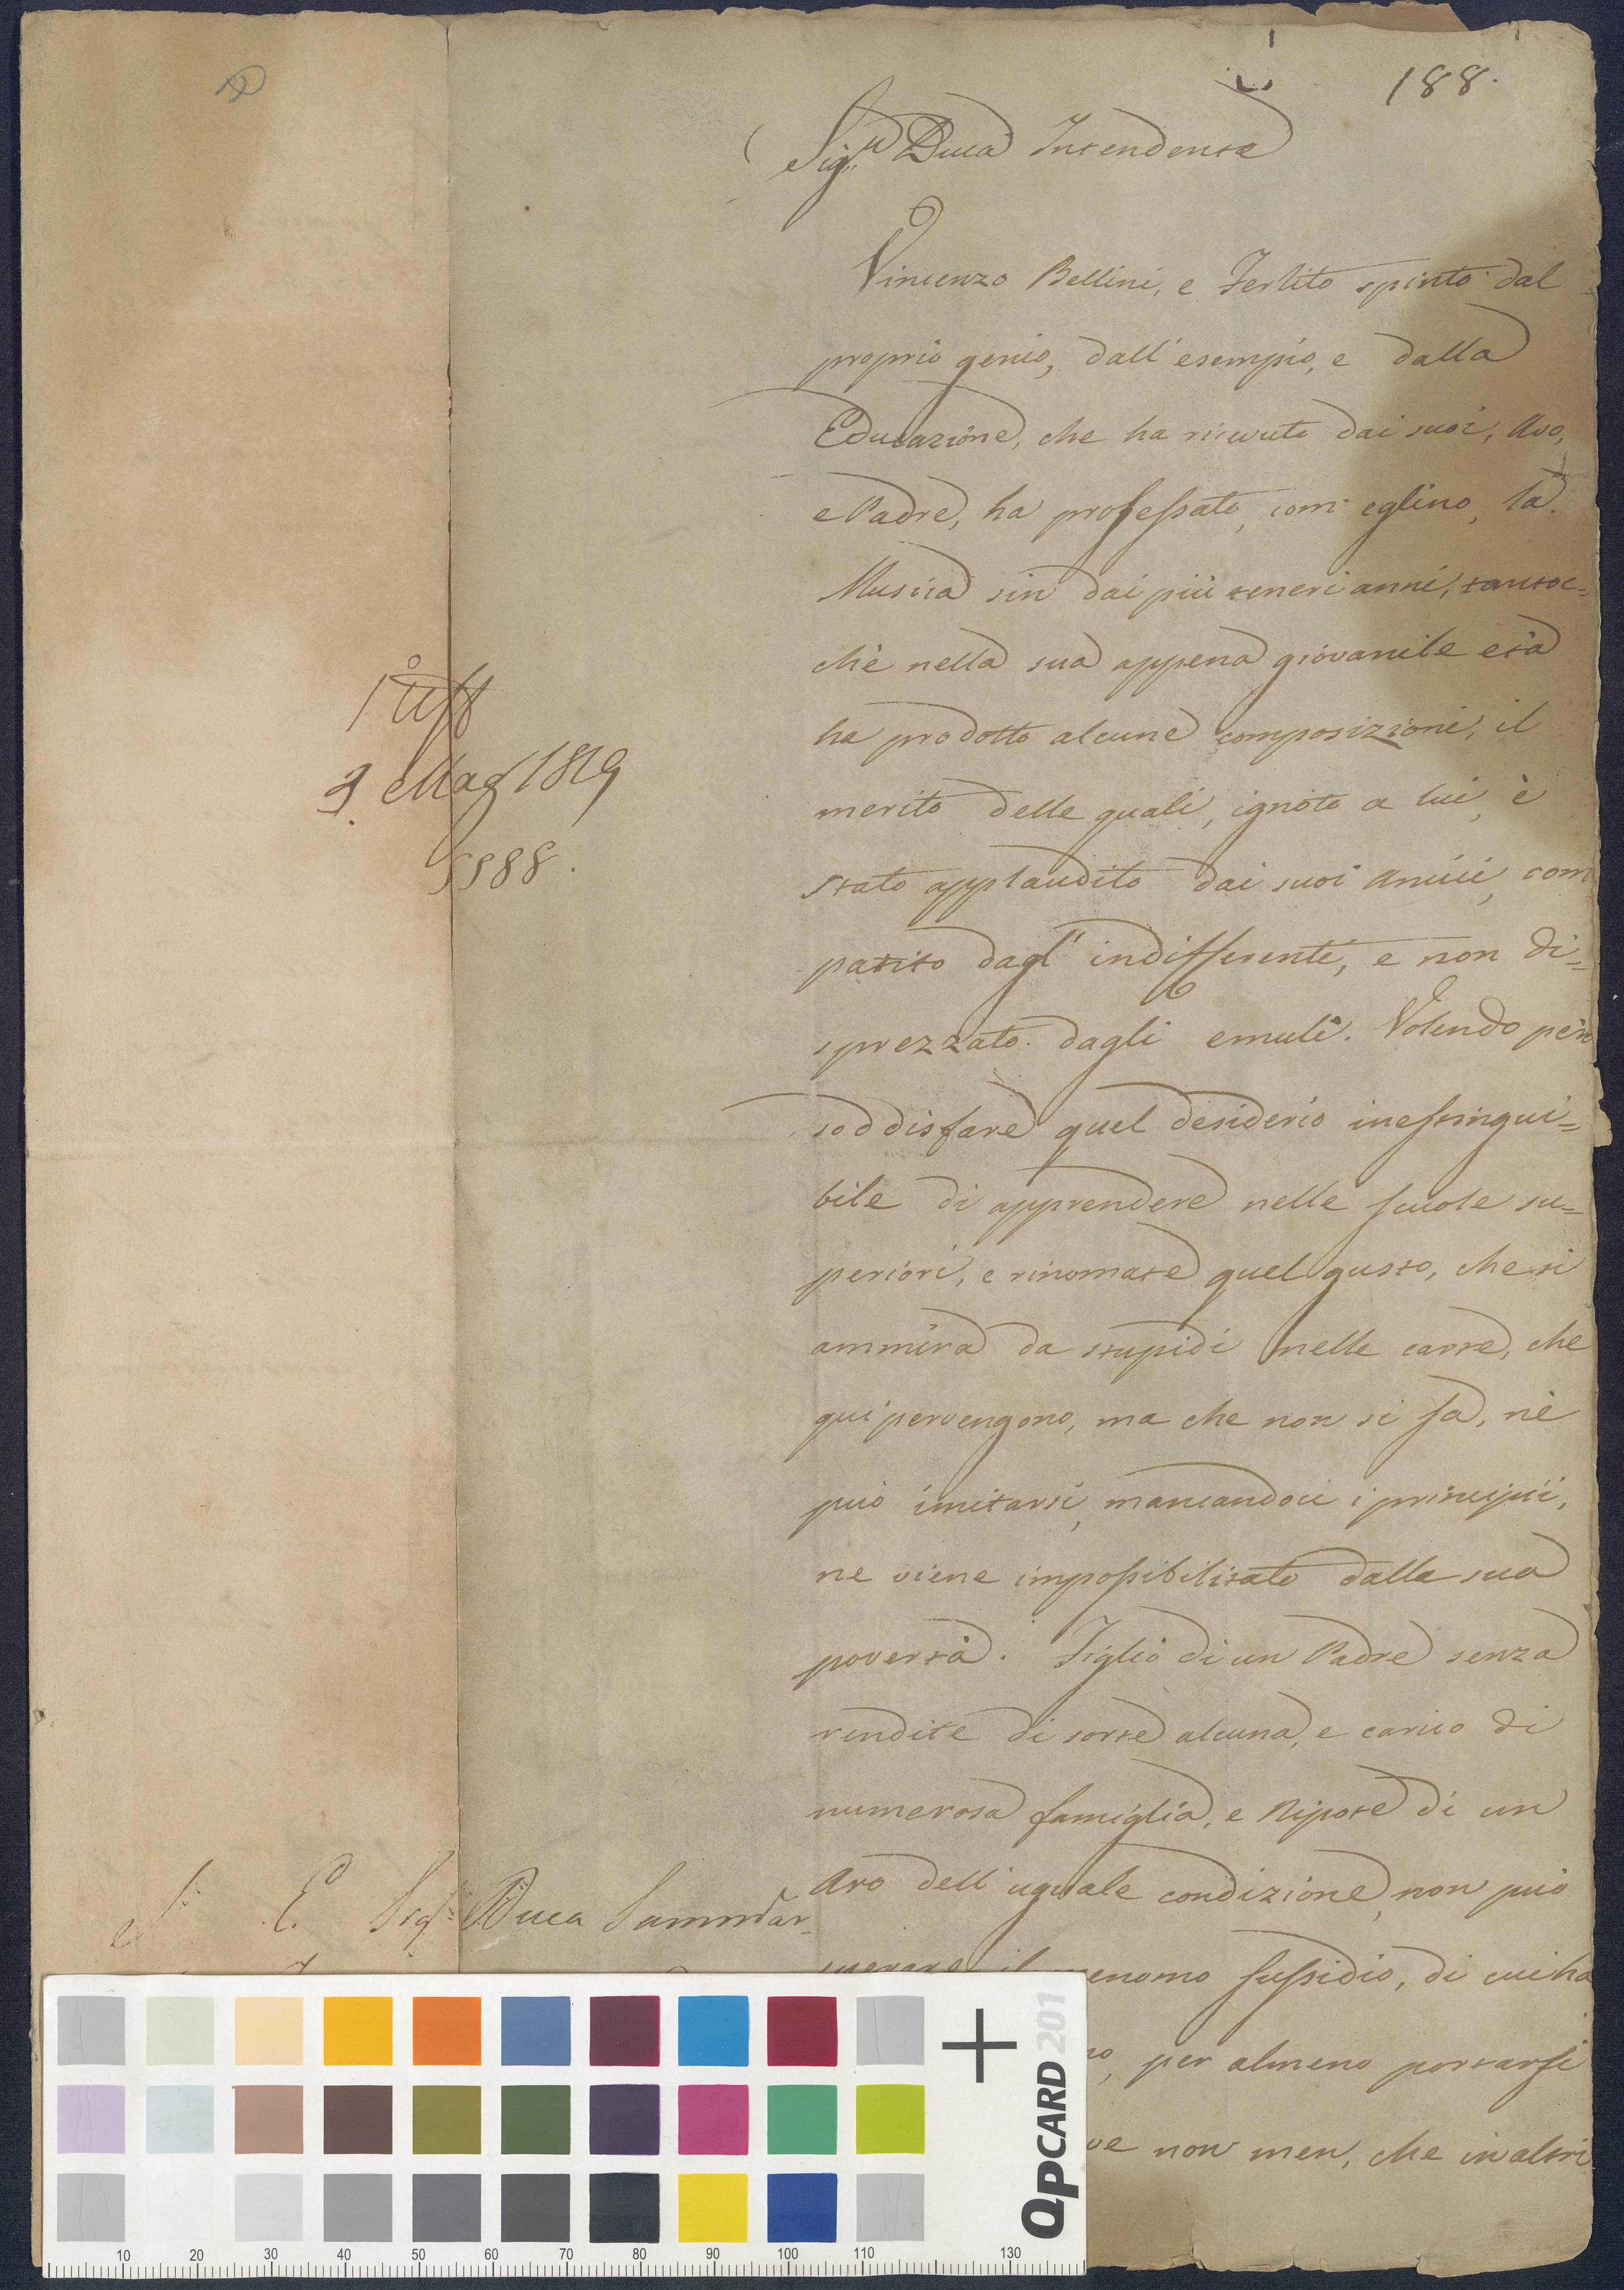 188.
Sig.r Duca Intendente
Vincenzo Bellini, e Ferlito spinto dal
proprio genio, dall'esempio, e dalla
Educazione, che ha ricevuto dai suoi, Avo,
e Padre, ha professato, com' eglino, la
Musica sin dai più teneri anni, tantoc=
chè nella sua appena giovanile età
ha prodotto alcune composizioni, il
merito delle quali, ignoto a lui, è
stato applaudito dai suoi Amici, com
patito dagl' indifferenti, e non di=
sprezzato dagli emuli. Volendo però
soddisfare quel desiderio inestingui=
bile di apprendere nelle scuole su=
periori, e rinomate quel gusto, che si
ammira da stupidi nelle carte, che
qui pervengono, ma che non si sa, nè
può imitarsi, mancandoci i principii,
ne viene impossibilitato dalla sua
povertà. Figlio di un Padre senza
rendite di sorte alcuna, e carico di
numerosa famiglia, e Nipote di un
Avo dell' uguale condizione, non può
sperare il menomo sussidio, di cui ha
per almeno portarsi
ve non men, che in altri
1° Uff
9 Mag 1819
5988.
S. E. Sig. Duca Sammar-
QPCARD 201
10 20 30 40 50 60 70 80 90 100 110 130